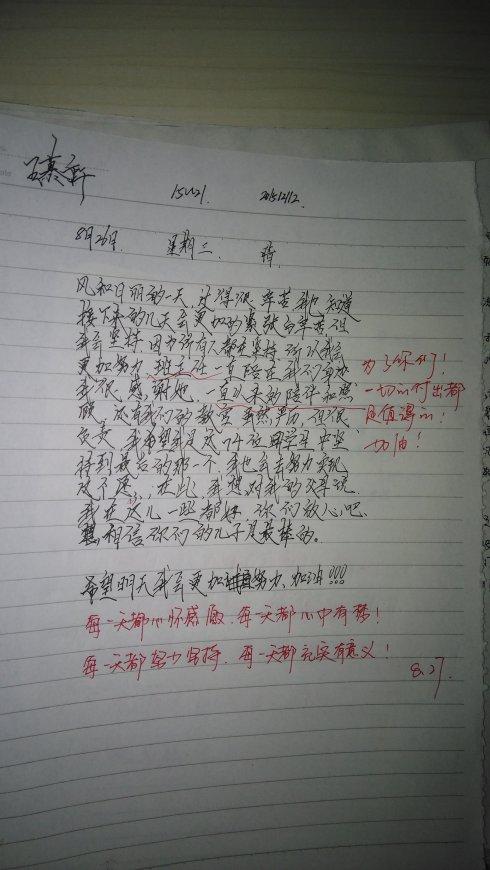 8月26日 星期三 晴
风和日丽的一天,过得很辛苦,我也知道
接下来的几天会更加的紧张与辛苦,但
我会坚持,因为所有人都在坚持,所以我会
更加努力,班主任一直陪在我们身边
我很感谢她,一直以来的陪伴和照
顾,还有我们的教官虽然严厉,但很
负责,我希望我是这74位同学里中坚
持到最后的那一个,我也会去努力实现
这个愿,在此,我想对我的父母说:
我在这儿一些都好,你们放心吧.
相信你们的儿子是最棒的。
希望明天我会更加努力、加油!!!
为了你们!
一切的付出都
是值得的!
加油!
每一天都心怀感激、每一天都心中有梦!
每一天都努力坚持、每一天都充实有意义!
8.27.